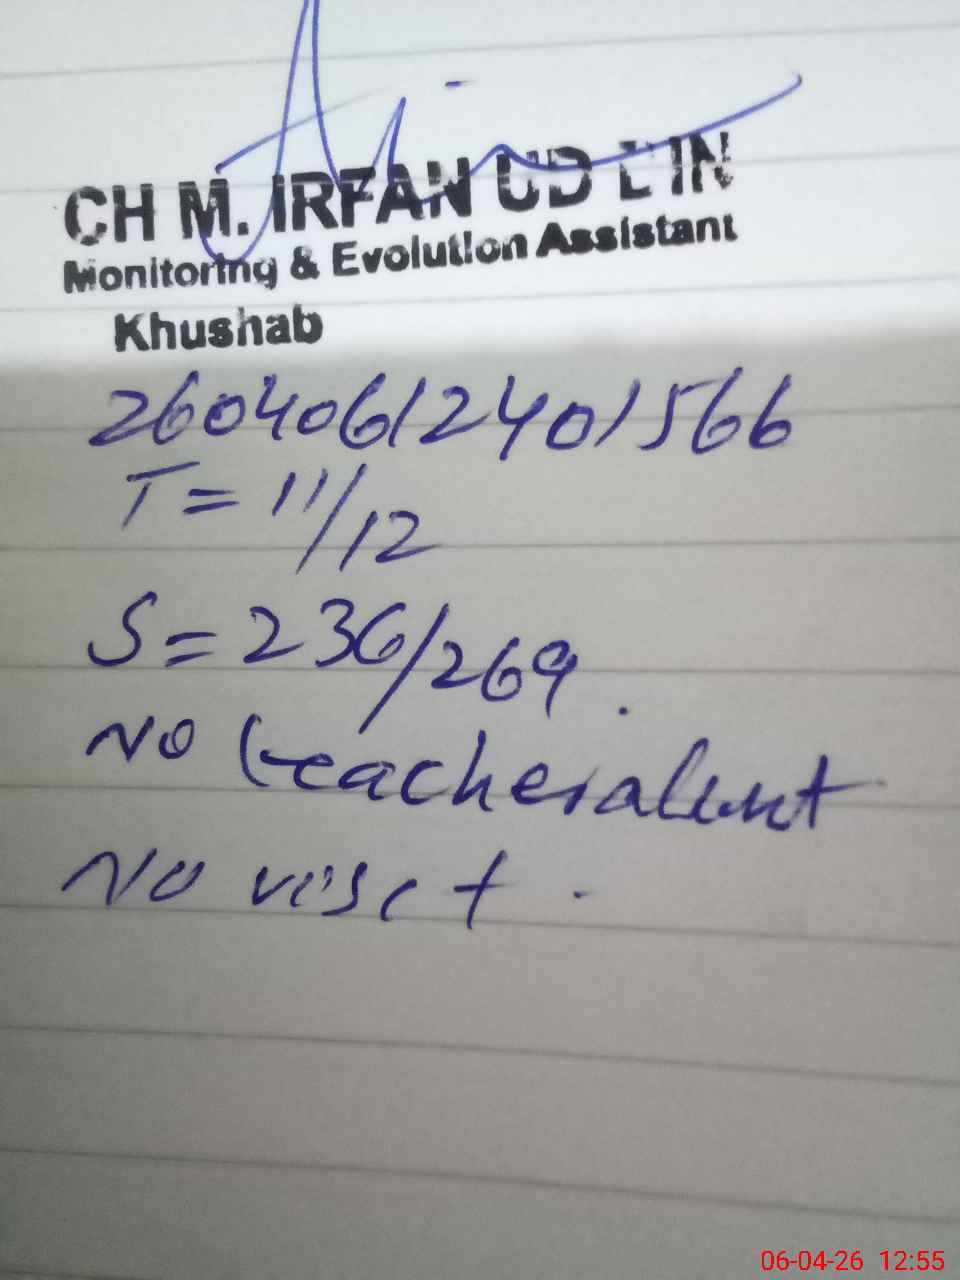 CH M. IRFAN UD DIN
Monitoring & Evolution Assistant
Khushab
26040612401566
T = 11/12
S = 236/269.
NO teacher absent
NO visit.
06-04-26 12:55